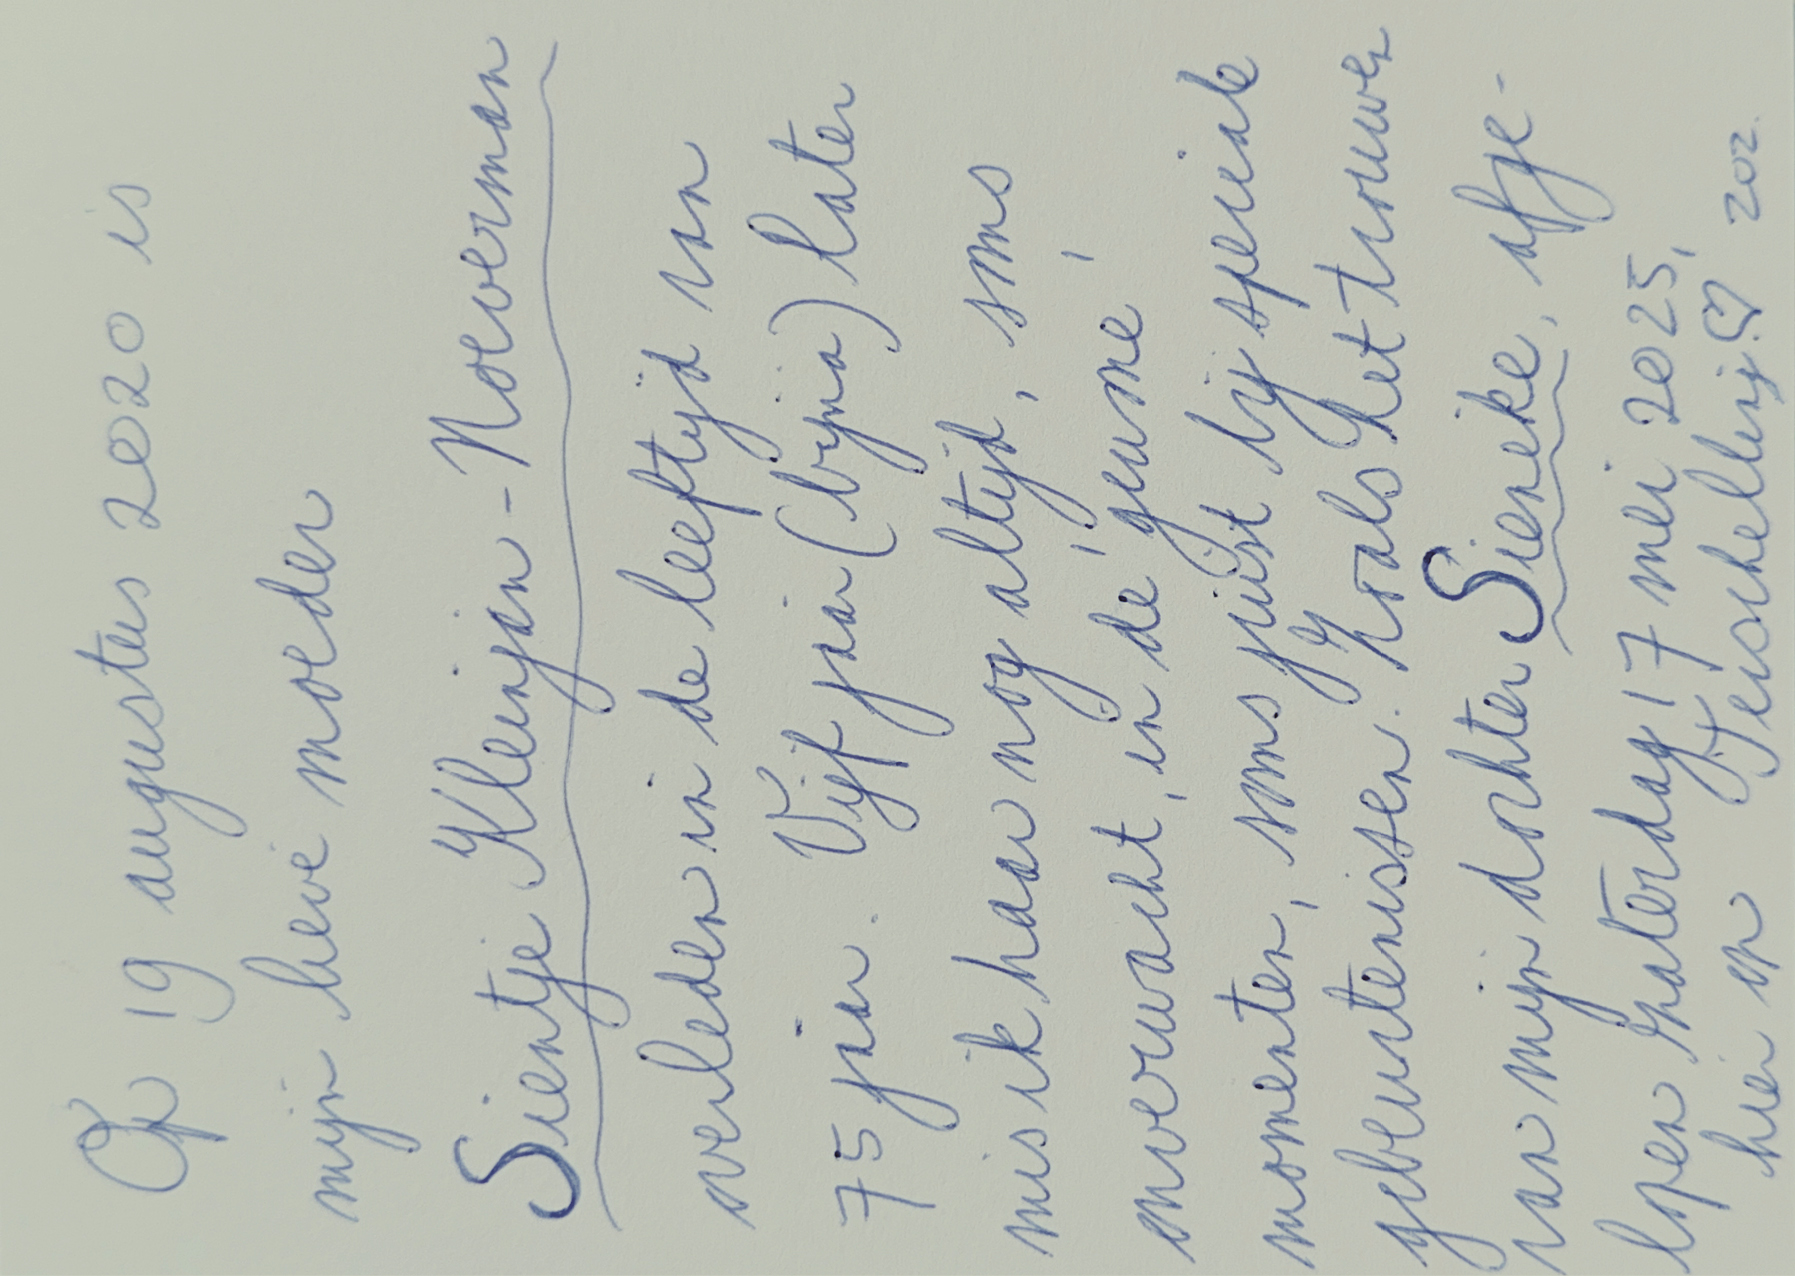 Op 19 augustus 2020 is
mijn lieve moeder
Sientje Kleinjan - Noeverman
overleden in de leeftijd van
75 jaar. Vijf jaar (bijna) later
mis ik haar nog altijd, soms
onverwacht, in de 'gewone'
momenten, soms juist bij speciale
gebeurtenissen. Zoals het trouwen
van mijn dochter Sieneke, afge-
lopen zaterdag 17 mei 2025,
hier op Terschelling. ♡ 202